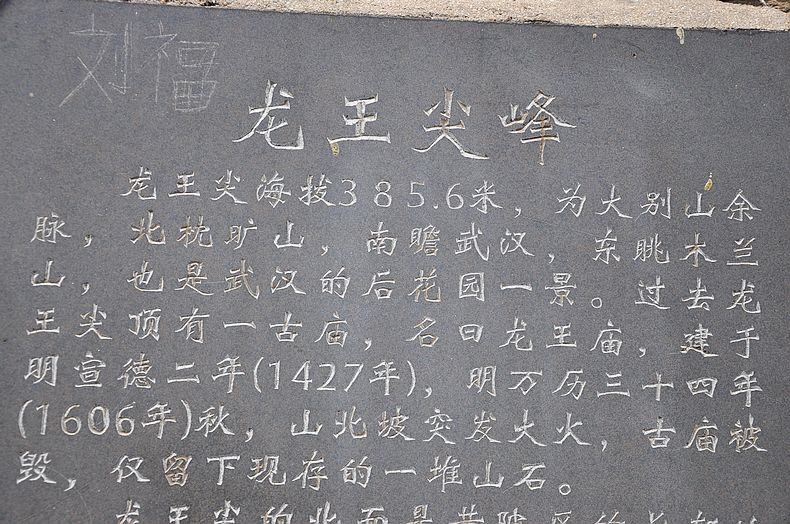 刘福
龙王尖峰
龙王尖海拔385.6米，为大别山余
脉，北枕旷山，南瞻武汉，东眺木兰
山，也是武汉的后花园一景。过去龙
王尖顶有一古庙，名曰龙王庙，建于
明宣德二年(1427年)，明万历三十四年
(1606年)秋，山北坡突发大火，古庙被
毁，仅留下现存的一堆山石。
龙王尖的北面是黄陂区的